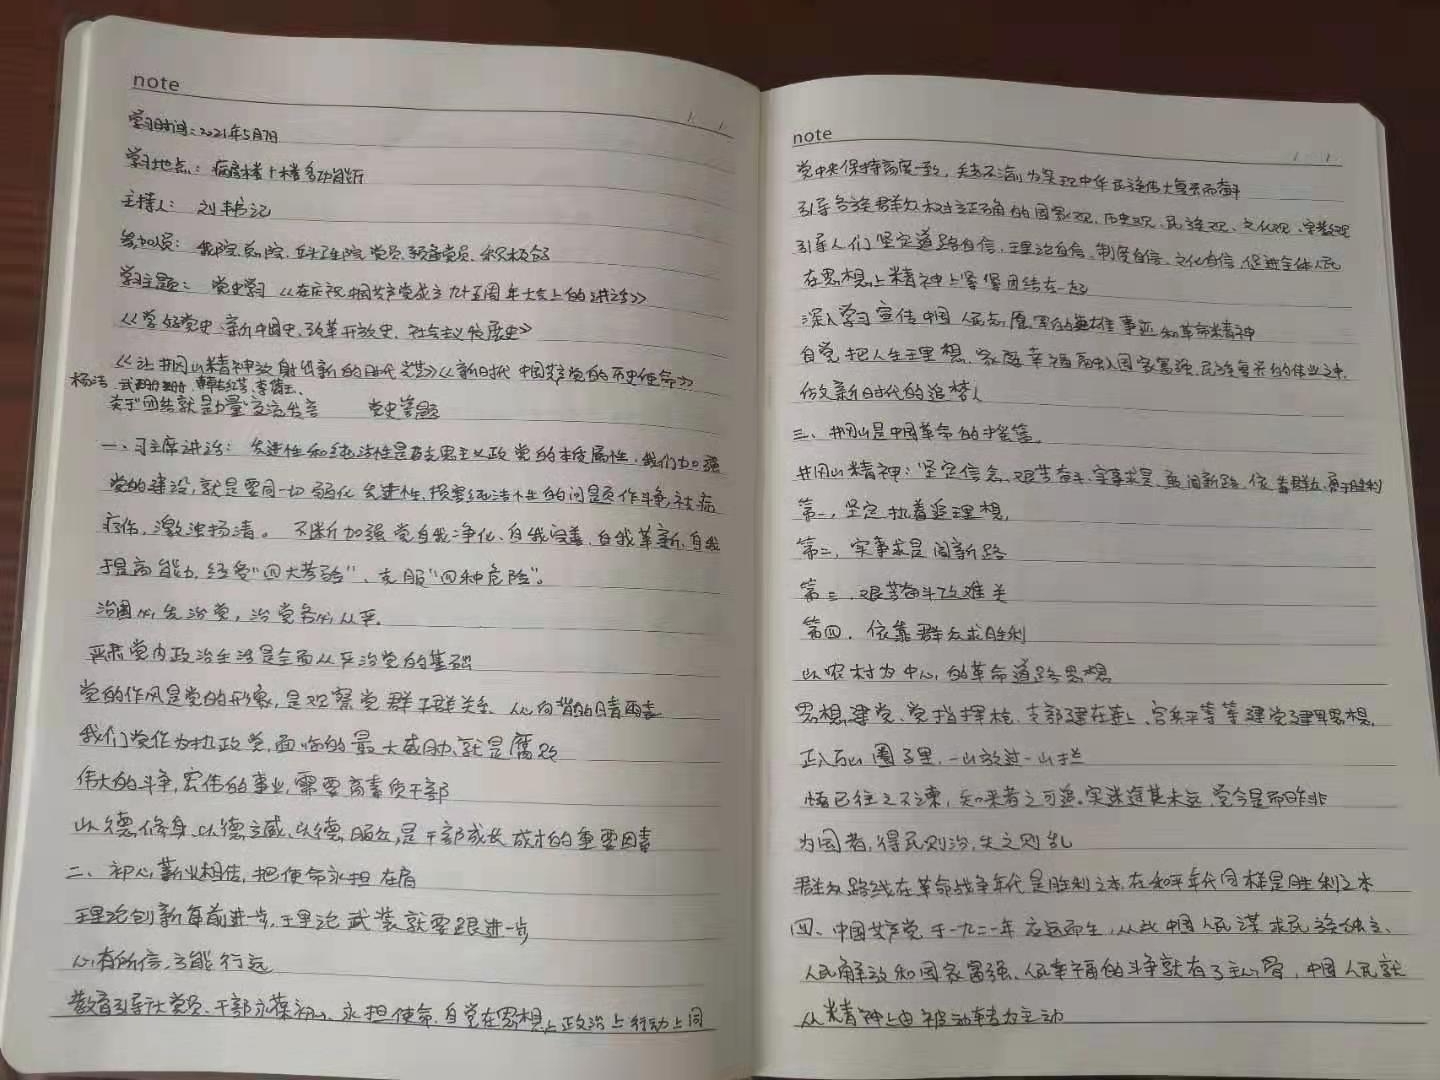 note
学习时间:2021年5月7日
学习地点:病房楼十楼多功能厅
主持人: 刘书记
参加人员: 我院、总院、 院党员、预备党员、积极分子
学习主题: 党史学习《在庆祝中国共产党成立九十五周年大会上的讲话》
《学好党史、新中国史、改革开放史、社会主义发展史》
《让井冈山精神放射出新的时代光芒》《新时代中国共产党的历史使命》
杨洁、
关于"团结就是力量"交流发言 党史答题
一、习主席讲话: 先进性和纯洁性是马克思主义政党的本质属性,我们加强
党的建设,就是要同一切弱化先进性,损害纯洁性的问题作斗争,祛病
疗伤,激浊扬清。不断加强党自我净化、自我完善、自我革新、自我
提高能力,经受"四大考验"、克服"四种危险"。
治国必先治党,治党务必从严。
严肃党内政治生活是全面从严治党的基础
党的作风是党的形象,是观察党群干群关系、人心向背的晴雨表
我们党作为执政党,面临的最大威胁、就是腐败
伟大的斗争,宏伟的事业,需要高素质干部
以德修身、以德立威、以德服众,是干部成长成才的重要因素
二、初心薪火相传,把使命永担在肩
理论创新每前进一步,理论武装就要跟进一步
心有所信,方能行远
教育引导 党员、干部永葆初心、永担使命,自觉在思想上政治上行动上同
note
党中央保持高度一致,矢志不渝为实现中华民族伟大复兴而奋斗
引导各族群众树立正确的国家观、历史观、民族观、文化观、宗教观
引导人们坚定道路自信、理论自信、制度自信、文化自信,促进全体人民
在思想上精神上紧紧团结在一起
深入学习宣传中国人民志愿军的英雄事迹和革命精神
自觉把人生理想、家庭幸福融入国家富强、民族复兴的伟业之中,
做新时代的追梦人
三、井冈山是中国革命的摇篮。
井冈山精神:坚定信念、艰苦奋斗、实事求是、敢闯新路、依靠群众、勇于胜利
第一,坚定执着追理想,
第二,实事求是闯新路
第三,艰苦奋斗攻难关
第四,依靠群众求胜利
以农村为中心的革命道路思想
思想建党、党指挥枪、支部建在连上、官兵平等等建党建军思想,
正入万山圈子里,一山放过一山拦
悟已往之不谏,知来者之可追。实迷途其未远,觉今是而昨非
为国者,得民则治,失之则乱
群众路线在革命战争年代是胜利之本,在和平年代同样是胜利之本
四、中国共产党于一九二一年应运而生,从此中国人民谋求民族独立、
人民解放和国家富强、人民幸福的斗争就有了主心骨,中国人民就
从精神上由被动转为主动